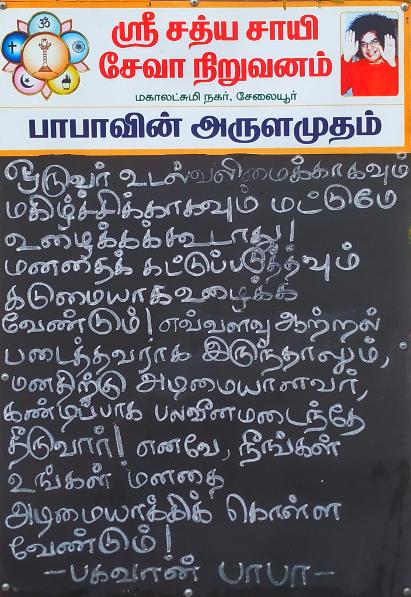 ஸ்ரீ சத்ய சாயி
சேவா நிறுவனம்
மகாலட்சுமி நகர், சேலையூர்
பாபாவின் அருளமுதம்
ஒருவர் உடல்வலிமைக்காகவும்
மகிழ்ச்சிக்காகவும் மட்டுமே
உழைக்கக்கூடாது!
மனதைக் கட்டுப்படுத்தவும்
கடுமையாகஉழைக்க
வேண்டும்! எவ்வளவு ஆற்றல்
படைத்தவராக இருந்தாலும்,
மனதிற்கு அடிமையானவர்,
கண்டிப்பாக பலவீனமடைந்தே
தீடுவார்! எனவே, நீங்கள்
உங்கள் மனதை
அடிமையாக்கிக் கொள்ள
வேண்டும்!
-பகவான் பாபா-